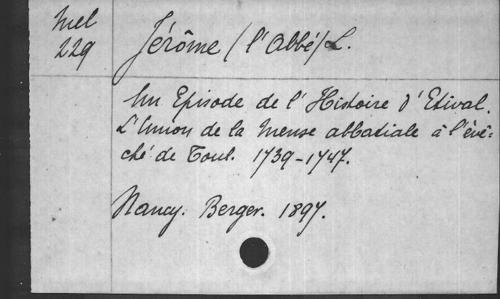 Mel
229
Jérôme (l'abbé) L.
Un Episode de l'Histoire d'Etival.
L'Union de la mense abbatiale à l'évê-
ché de Toul. 1739-1747.
Nancy. Berger. 1897.